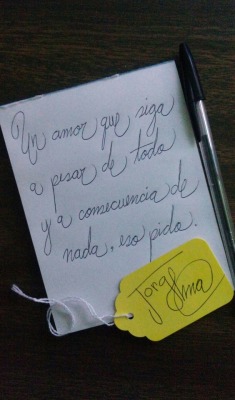 Un amor que siga
a pesar de todo
y a consecuencia de
nada, eso pido.
Jorge
Luna